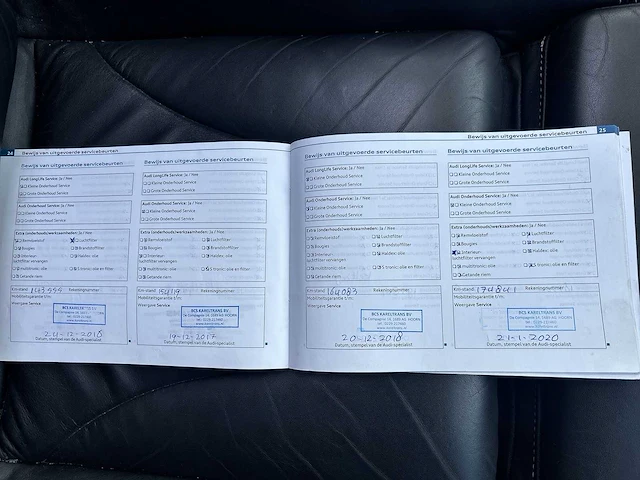 24
Bewijs van uitgevoerde servicebeurten
Audi LongLife Service: Ja / Nee
Kleine Onderhoud Service
Grote Onderhoud Service
Audi Onderhoud Service: Ja / Nee
Kleine Onderhoud Service
Grote Onderhoud Service
Extra (onderhouds)werkzaamheden: Ja / Nee
Remvloeistof Luchtfilter
Bougies Brandstoffilter
Interieur- Haldex: olie
luchtfilter vervangen
multitronic: olie S tronic: olie en filter
Getande riem
Km-stand 143555 Rekeningnummer
Mobiliteitsgarantie t/m:
Weergave Service
BCS KARELTRANS BV
Datum, stempel van de Audi-specialist
Bewijs van uitgevoerde servicebeurten
Audi LongLife Service: Ja / Nee
Kleine Onderhoud Service
Grote Onderhoud Service
Audi Onderhoud Service: Ja / Nee
Kleine Onderhoud Service
Grote Onderhoud Service
Extra (onderhouds)werkzaamheden: Ja / Nee
Remvloeistof Luchtfilter
Bougies Brandstoffilter
Interieur- Haldex: olie
luchtfilter vervangen
multitronic: olie S tronic: olie en filter
Getande riem
Km-stand Rekeningnummer
Mobiliteitsgarantie t/m:
Weergave Service
BCS KARELTRANS BV
19-12-2017
Datum, stempel van de Audi-specialist
Bewijs van uitgevoerde servicebeurten
Audi LongLife Service: Ja / Nee
Kleine Onderhoud Service
Grote Onderhoud Service
Audi Onderhoud Service: Ja / Nee
Kleine Onderhoud Service
Grote Onderhoud Service
Extra (onderhouds)werkzaamheden: Ja / Nee
Remvloeistof Luchtfilter
Bougies Brandstoffilter
Interieur- Haldex: olie
luchtfilter vervangen
multitronic: olie S tronic: olie en filter
Getande riem
Km-stand 164083 Rekeningnummer
Mobiliteitsgarantie t/m:
Weergave Service
BCS KARELTRANS BV
20-12-2018
Datum, stempel van de Audi-specialist
25
Bewijs van uitgevoerde servicebeurten
Bewijs van uitgevoerde servicebeurten
Audi LongLife Service: Ja / Nee
Kleine Onderhoud Service
Grote Onderhoud Service
Audi Onderhoud Service: Ja / Nee
Kleine Onderhoud Service
Grote Onderhoud Service
Extra (onderhouds)werkzaamheden: Ja / Nee
Remvloeistof Luchtfilter
Bougies Brandstoffilter
Interieur- Haldex: olie
luchtfilter vervangen
multitronic: olie S tronic: olie en filter
Getande riem
Km-stand 174841 Rekeningnummer
Mobiliteitsgarantie t/m:
Weergave Service
BCS KARELTRANS BV
21-1-2020
Datum, stempel van de Audi-specialist